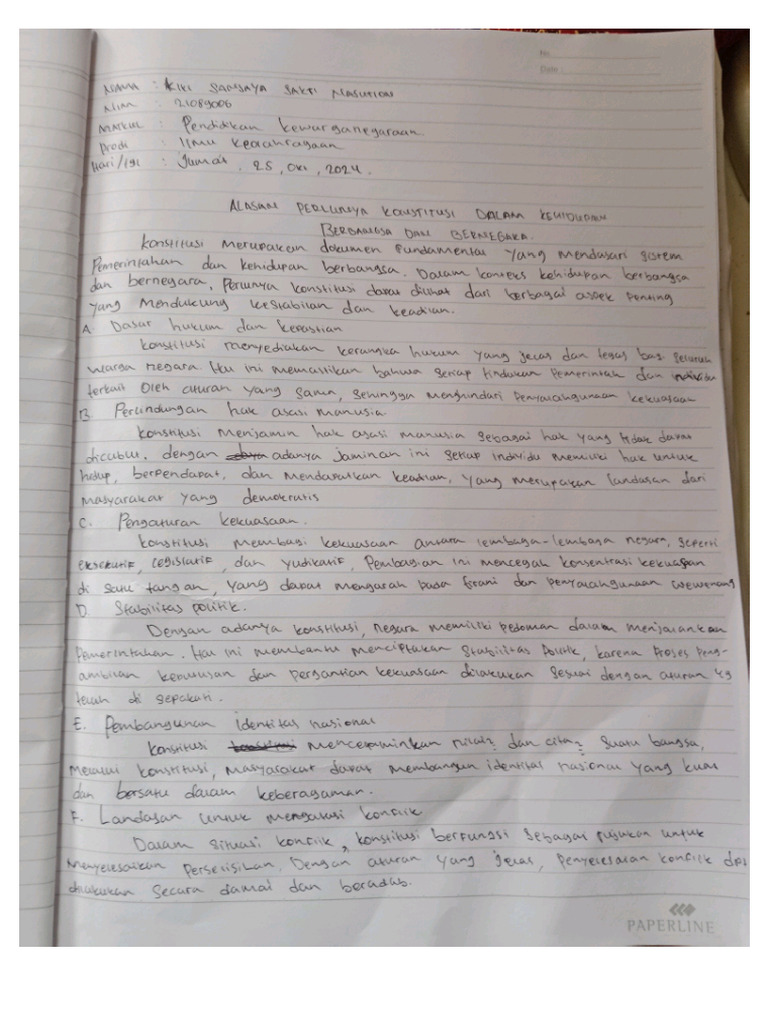 No:
Date:
Nama : Kiki Sanjaya Sakti Nasution
Nim : 21089006
Matkul : Pendidikan kewarganegaraan
Prodi : Ilmu keolahragaan
Hari/tgl : Jumat, 25, Okt, 2024.
ALASAN PERLUNYA KONSTITUSI DALAM KEHIDUPAN
BERBANGSA DAN BERNEGARA.
Konstitusi Merupakan dokumen Fundamental yang mendasari sistem
Pemerintahan dan kehidupan berbangsa. Dalam konteks kehidupan berbangsa
dan bernegara, Perlunya konstitusi dapat dilihat dari berbagai aspek penting
yang Mendukung kestabilan dan keadilan.
A. Dasar hukum dan kepastian
konstitusi menyediakan kerangka hukum yang jelas dan tegas bagi seluruh
warga negara. Hal ini memastikan bahwa setiap tindakan Pemerintah dan individu
terkait Oleh aturan yang sama, sehingga menghindari Penyalahgunaan kekuasaan
B. Perlindungan hak asasi manusia.
konstitusi Menjamin hak asasi manusia sebagai hak yang tidak dapat
dicabut, dengan adanya jaminan ini setiap individu memiliki hak untuk
hidup, berpendapat, dan Mendapatkan keadilan, yang merupakan landasan dari
masyarakat yang demokratis
C. Pengaturan kekuasaan.
konstitusi membagi kekuasaan antara lembaga-lembaga negara, seperti
eksekutif, legislatif, dan yudikatif, Pembagian ini mencegah konsentrasi kekuasaan
di satu tangan, yang dapat mengarah pada tirani dan penyalahgunaan wewenang
D. Stabilitas politik.
Dengan adanya konstitusi, negara memiliki pedoman dalam menjalankan
Pemerintahan. Hal ini membantu menciptakan stabilitas politik, karena Proses Peng-
ambilan keputusan dan pergantian kekuasaan dilakukan sesuai dengan aturan yg
telah di sepakati.
E. Pembangunan identitas nasional
konstitusi mencerminkan nilai2 dan cita2 suatu bangsa,
Melalui konstitusi, masyarakat dapat membangun identitas nasional yang kuat
dan bersatu dalam keberagaman.
F. Landasan untuk mengatasi konflik
Dalam situasi konflik, konstitusi berfungsi sebagai rujukan untuk
menyelesaikan Perselisihan. Dengan aturan yang jelas, Penyelesaian konflik dpt
dilakukan secara damai dan beradab.
PAPERLINE